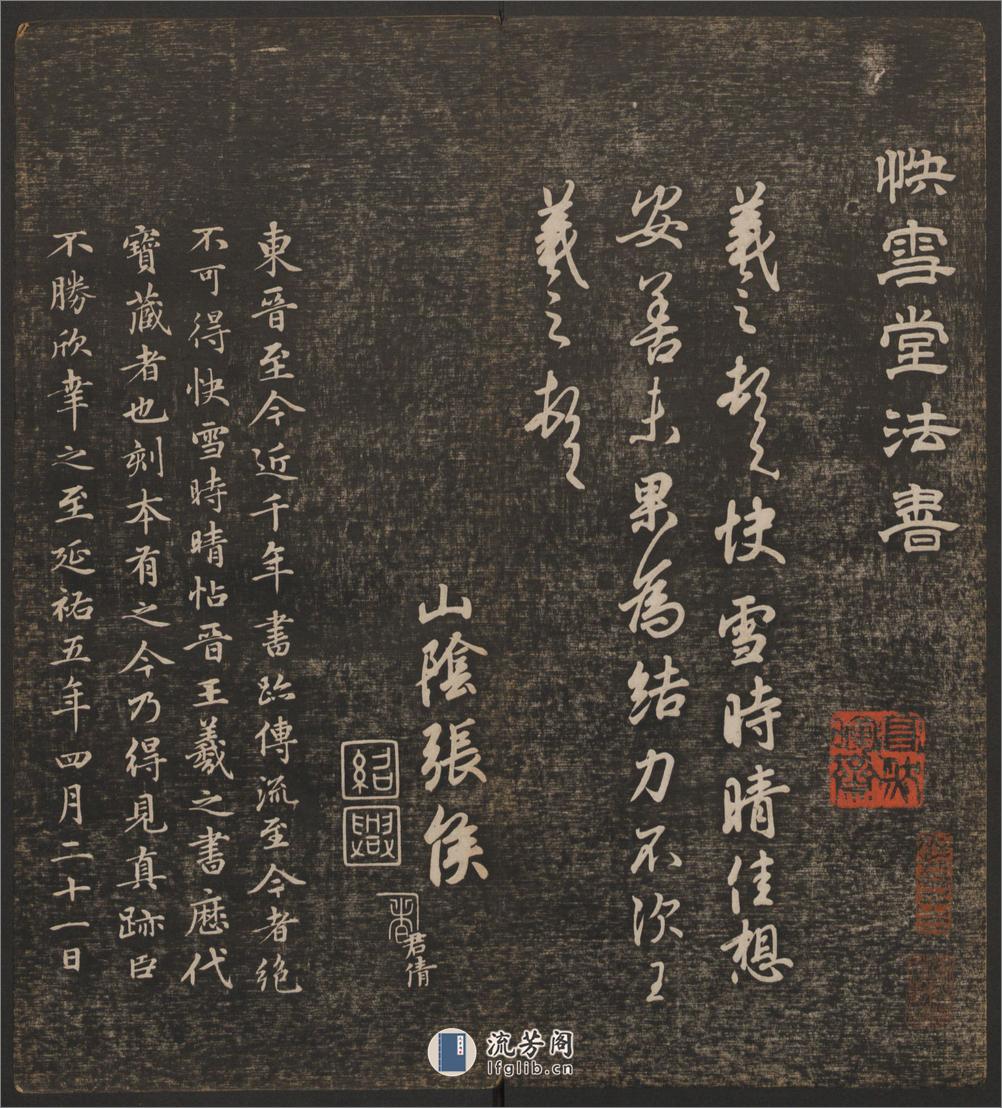 快雪堂法書
羲之頓首快雪時晴佳想
安善未果為結力不次王
羲之頓首
山陰張侯
紹興
君倩
東晉至今近千年書跡傳流至今者絕
不可得快雪時晴帖晉王羲之書歷代
寶藏者也刻本有之今乃得見真跡臣
不勝欣幸之至延祐五年四月二十一日
流芳阁
lfglib.cn